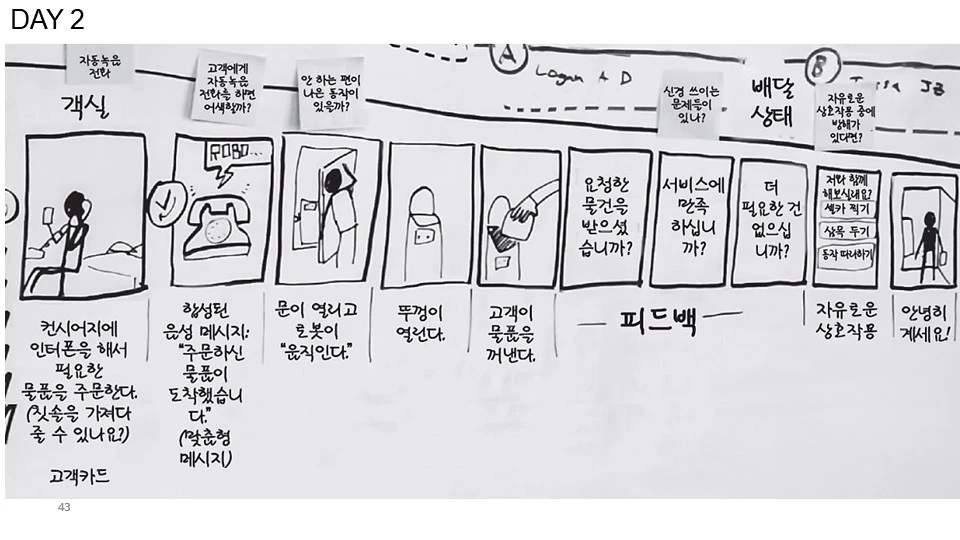 DAY 2
자동녹음
전화
고객에게
자동녹음
전화를 하면
어색할까?
안 하는 편이
나은 동작이
있을까?
A
Logan A D
신경 쓰이는
문제들이
있나?
배달
상태
B
JB
자유로운
상호작용 중에
방해가
있다면?
객실
ROBO...
요청한
물건을
받으셨
습니까?
서비스에
만족
하십니
까?
더
필요한 건
없으십
니까?
저와 함께
해보실래요?
셀카 찍기
삼목 두기
동작 따라하기
컨시어지에
인터폰을 해서
필요한
물품을 주문한다.
(칫솔을 가져다
줄 수 있나요?)
고객카드
합성된
음성 메시지:
"주문하신
물품이
도착했습니
다."
(맞춤형
메시지)
문이 열리고
로봇이
"움직인다."
뚜껑이
열린다.
고객이
물품을
꺼낸다.
피드백
자유로운
상호작용
안녕히
계세요!
43